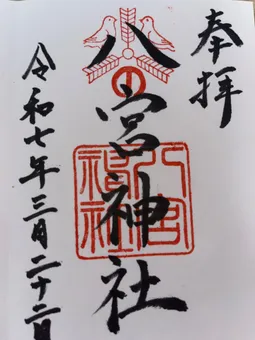 奉拝
八宮神社
八宮
神社
令和七年三月二十二日